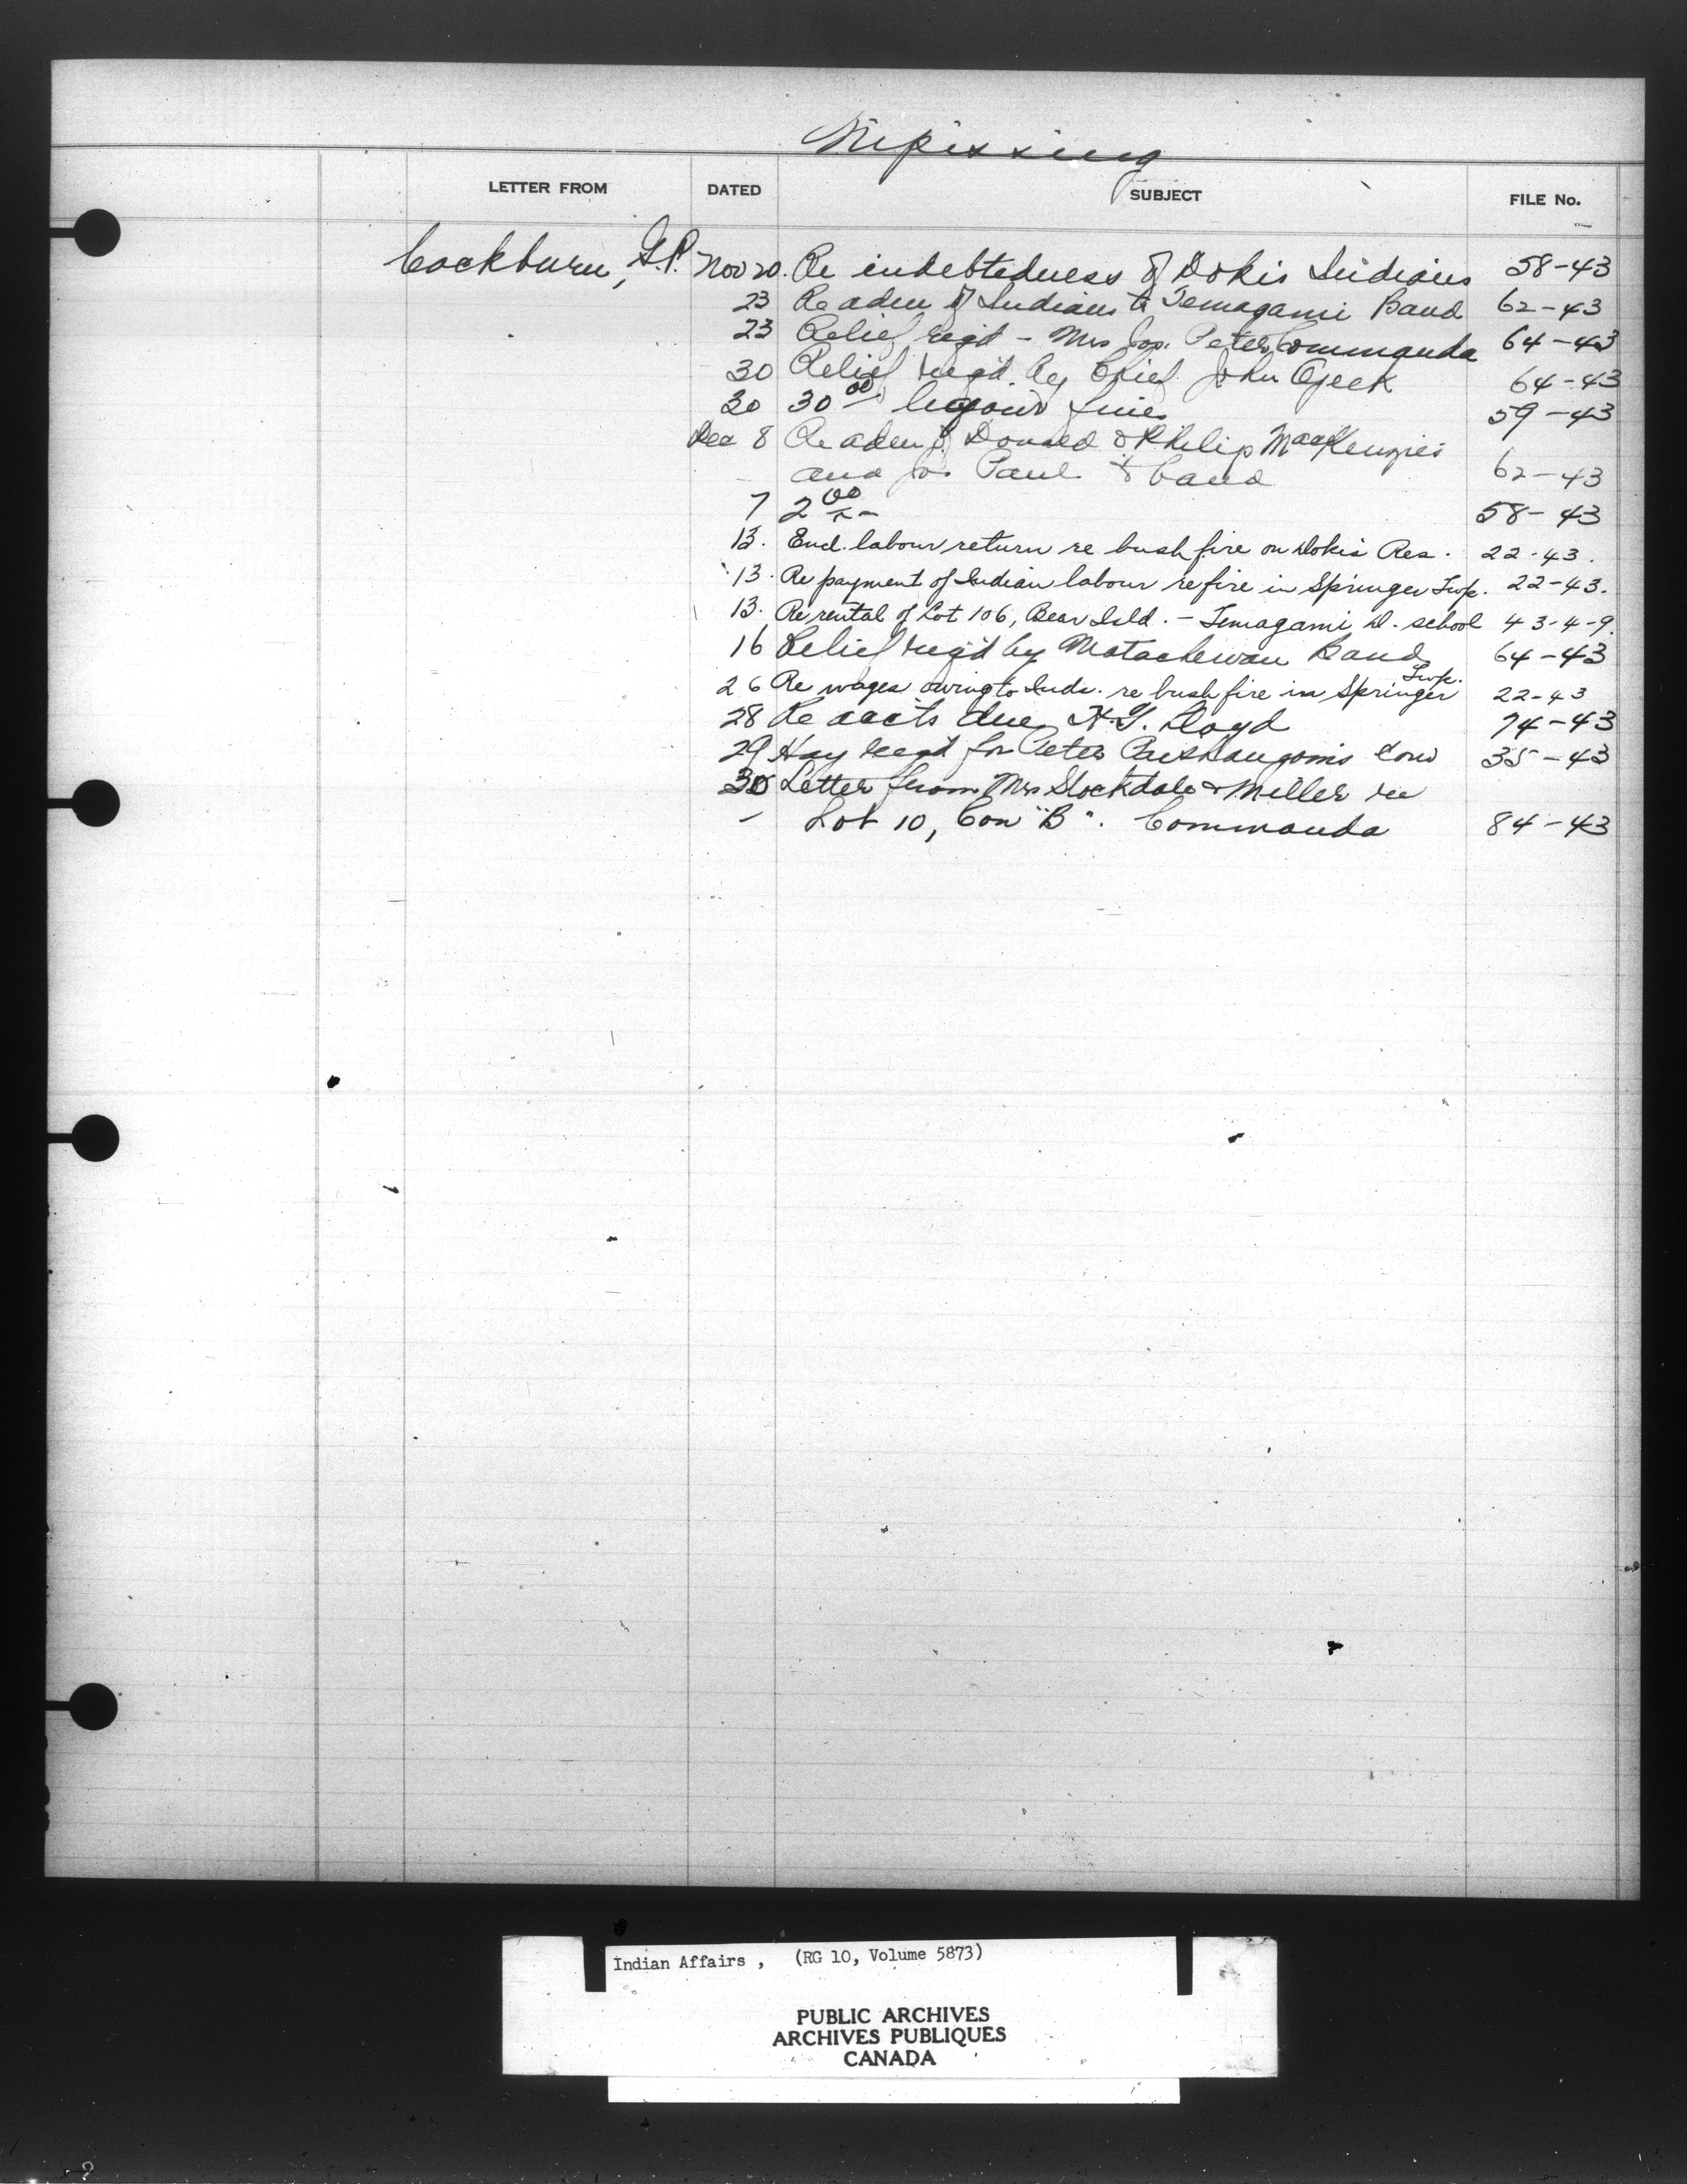 Nipissing
LETTER FROM DATED SUBJECT FILE No.
Cockburn, G.P. Nov 20. Re indebtedness of Dokis Indians 58-43
23 Re adm of Indians to Temagami Band 62-43
23 Relief reqd - Mrs Jos. Peter Commanda 64-43
30 Relief req'd by Chief John 64-43
30 30 00 liquor fines 59-43
Dec 8 Re adm of Donald & Philip MacKenzie
and Jos. Paul to band 62-43
7 2 00 58-43
13. Encl. labour return re bush fire on Dokis Res. 22-43.
13. Re payment of Indian labour re fire in Springer Twp. 22-43.
13. Re rental of Lot 106, Bear Isld. - Temagami D. school 43-4-9.
16 Relief req'd by Matachewan Band 64-43
26 Re wages owing to Inds. re bush fire in Springer Twp. 22-43
28 Re accts due H.G. Lloyd 74-43
29 Hay reqd for Peter cow 35-43
30 Letter from Mrs Stockdale & Miller re
Lot 10, Con "B". Commanda 84-43
Indian Affairs , (RG 10, Volume 5873)
PUBLIC ARCHIVES
ARCHIVES PUBLIQUES
CANADA